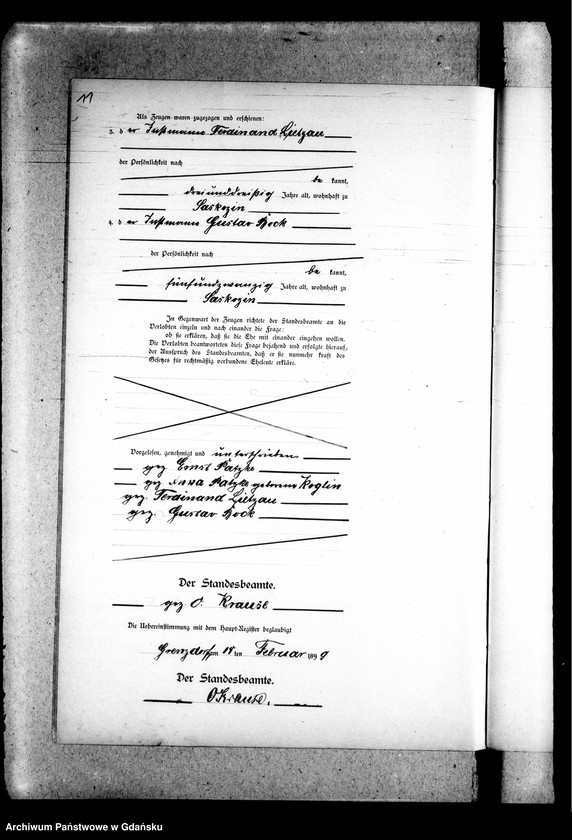 11
Als Zeugen waren zugezogen und erschienen:
3. der Instmann Ferdinand Lietzau
der Persönlichkeit nach
be kannt,
dreiunddreißig Jahre alt, wohnhaft zu
Saskozin
4. der Instmann Gustav Bock
der Persönlichkeit nach
be kannt,
fünfundzwanzig Jahre alt, wohnhaft zu
Saskozin
In Gegenwart der Zeugen richtete der Standesbeamte an die
Verlobten einzeln und nach einander die Frage:
ob sie erklären, daß sie die Ehe mit einander eingehen wollen.
Die Verlobten beantworteten diese Frage bejahend und erfolgte hierauf,
der Ausspruch des Standesbeamten, daß er sie nunmehr kraft des
Gesetzes für rechtmäßig verbundene Eheleute erkläre.
Vorgelesen, genehmigt und unterschrieben
gez Ernst Patzke
gez Anna Patzke geborene Koglin
gez. Ferdinand Lietzau
gez. Gustav Bock
Der Standesbeamte.
gez O. Krause
Die Uebereinstimmung mit dem Haupt-Register beglaubigt
Grenzdorf am 18 ten Februar 1899
Der Standesbeamte.
O Krause.
Archiwum Państwowe w Gdańsku